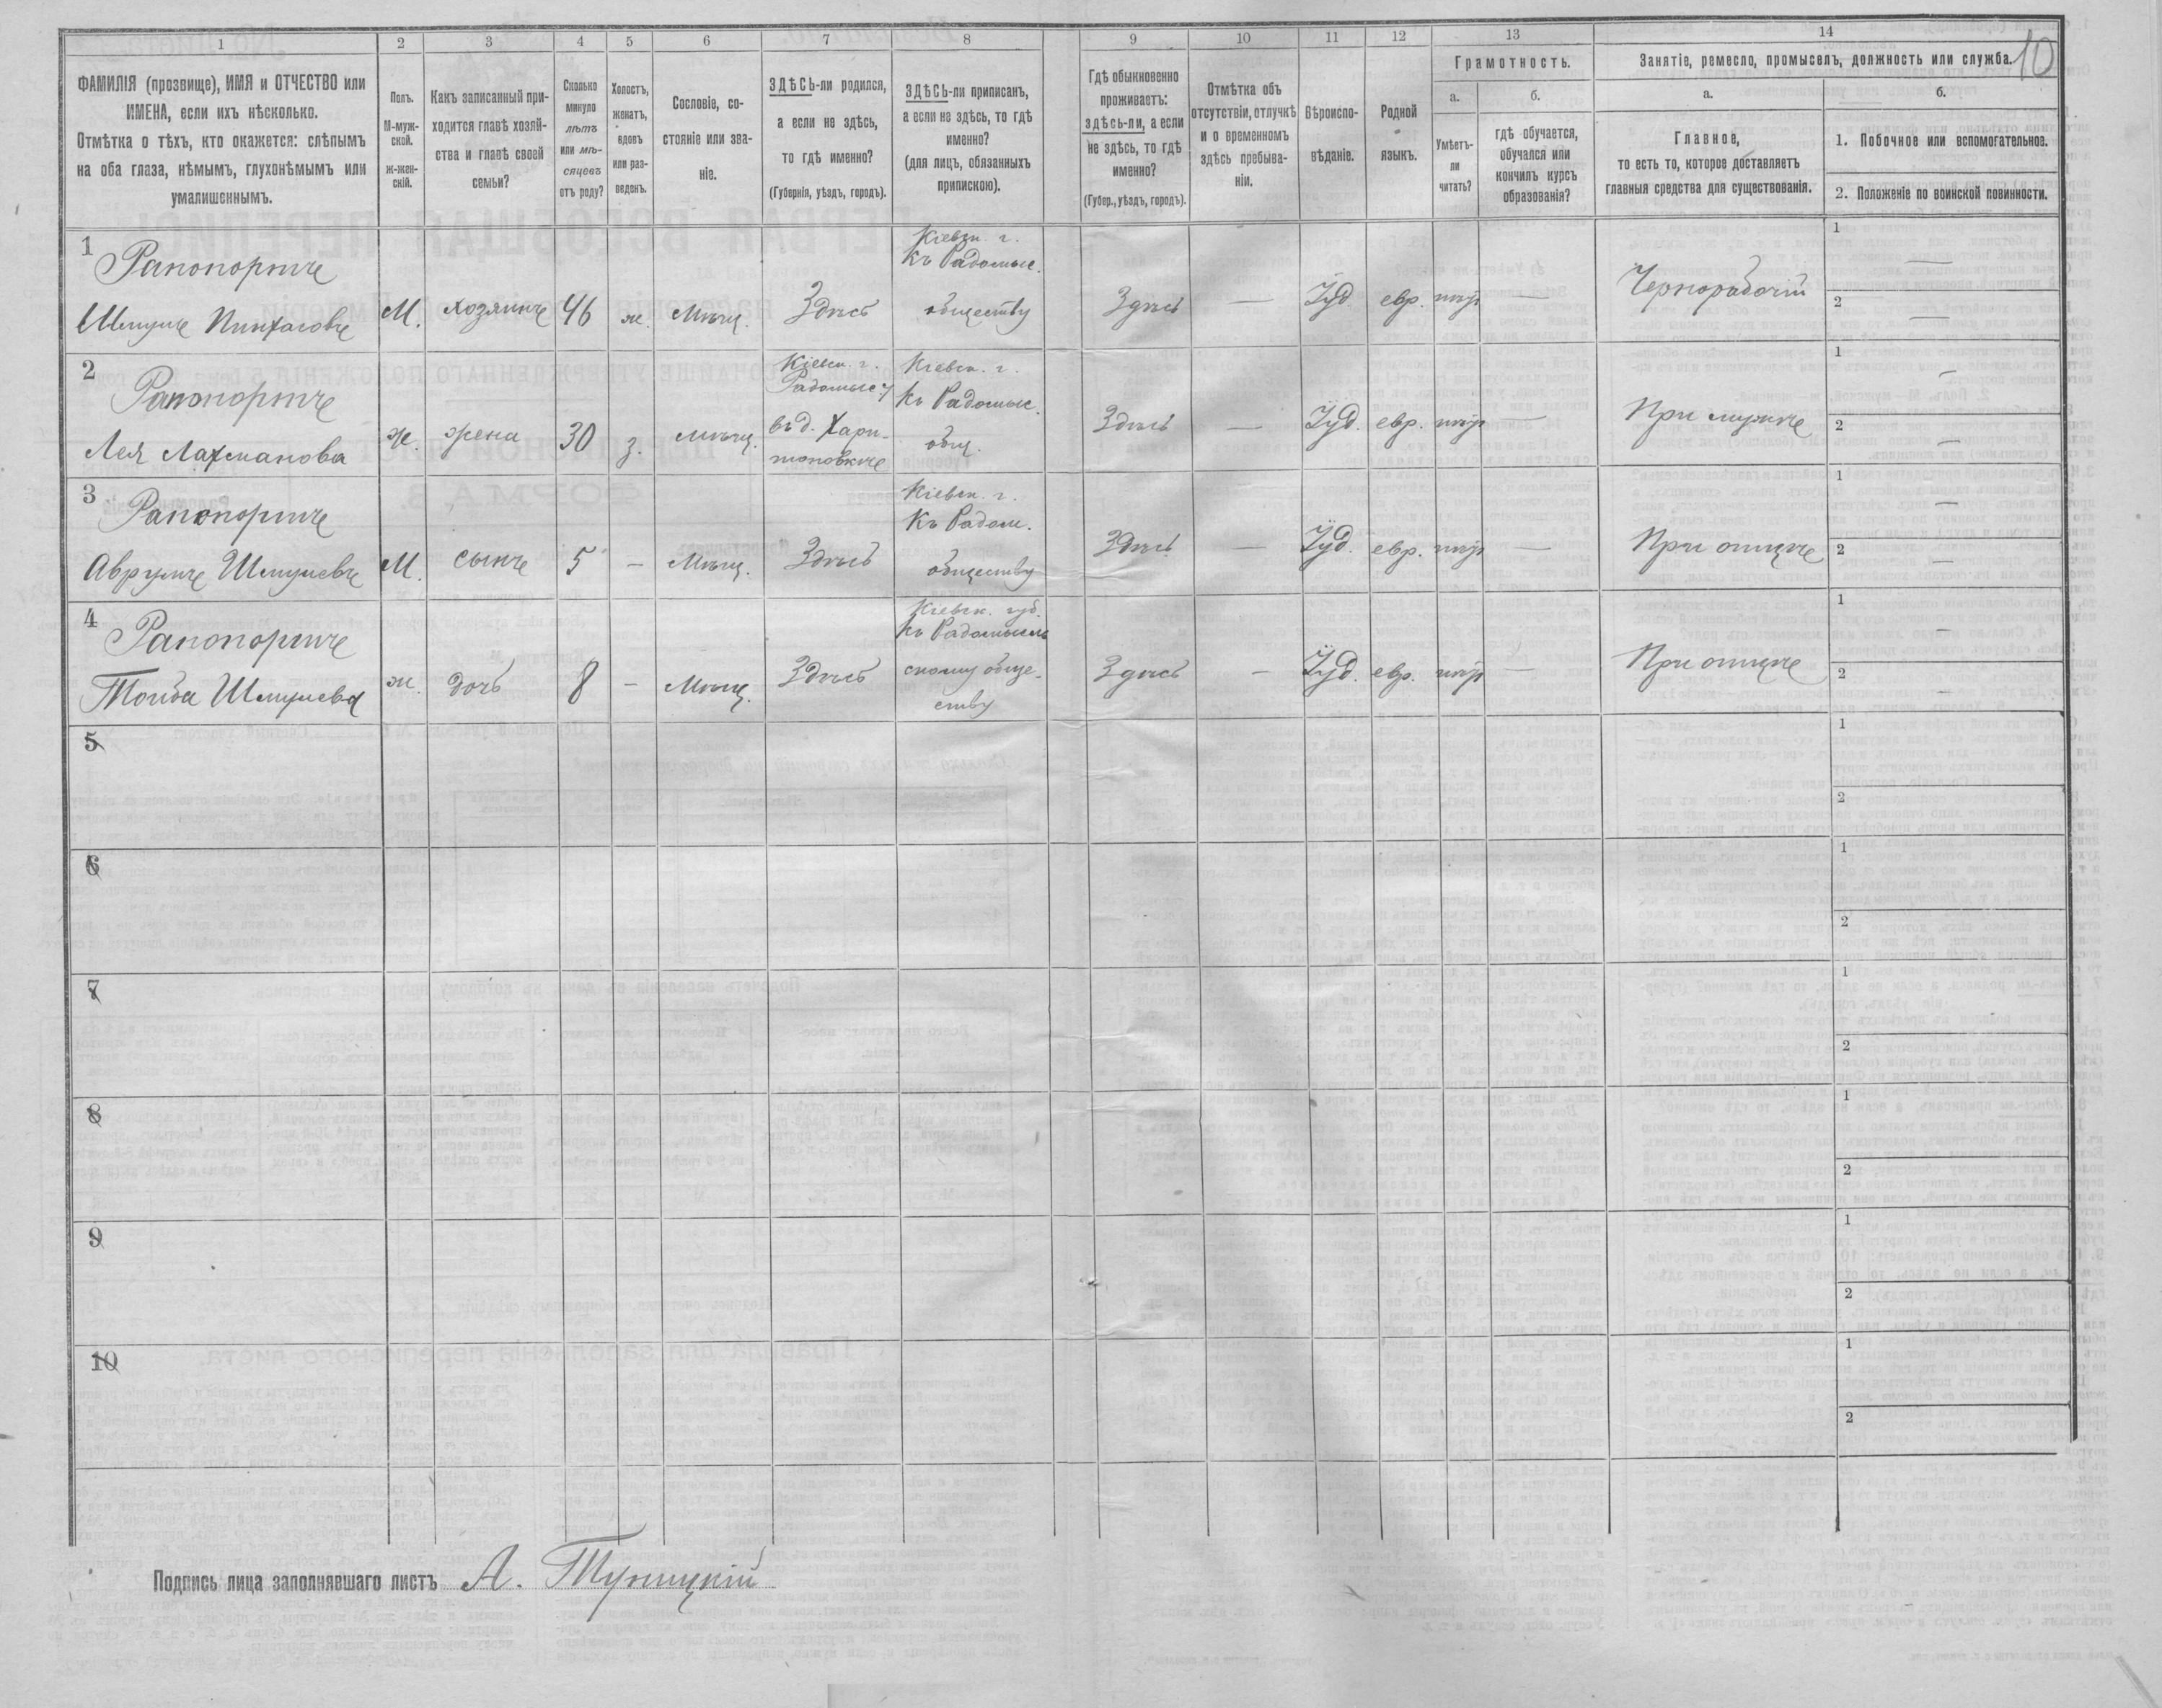 1 2 3 4 5 6 7 8 9 10 11 12 13 14
10
ФАМИЛІЯ (прозвище), ИМЯ и ОТЧЕСТВО или
ИМЕНА, если ихъ нѣсколько.
Отмѣтка о тѣхъ, кто окажется: слѣпымъ
на оба глаза, нѣмымъ, глухонѣмымъ или
умалишеннымъ.
Полъ.
М-муж-
ской.
ж-жен-
скій.
Какъ записанный при-
ходится главѣ хозяй-
ства и главѣ своей
семьи?
Сколько
минуло
лѣтъ
или мѣ-
сяцевъ
отъ роду?
Холостъ,
женатъ,
вдовъ
или раз-
веденъ.
Сословіе, со-
стояніе или зва-
ніе.
ЗДѢСЬ-ли родился,
а если не здѣсь,
то гдѣ именно?
(Губернія, уѣздъ, городъ).
ЗДѢСЬ-ли приписанъ,
а если не здѣсь, то гдѣ
именно?
(для лицъ, обязанныхъ
припискою).
Гдѣ обыкновенно
проживаетъ:
здѣсь-ли, а если
не здѣсь, то гдѣ
именно?
(Губер., уѣздъ, городъ).
Отмѣтка объ
отсутствіи, отлучкѣ
и о временномъ
здѣсь пребыва-
ніи.
Вѣроиспо-
вѣданіе.
Родной
языкъ.
Грамотность.
а.
Умѣетъ-
ли
читать?
б.
гдѣ обучается,
обучался или
кончилъ курсъ
образованія?
Занятіе, ремесло, промыселъ, должность или служба.
а.
Главное,
то есть то, которое доставляетъ
главныя средства для существованія.
б.
1. Побочное или вспомогательное.
2. Положеніе по воинской повинности.
1
Рапопортъ
Шмуль Пинхасовъ
М.
хозяинъ
46
ж.
Мѣщ.
Здѣсь
Кіевск. г.
Къ Радомыс.
обществу
Здѣсь
—
Іуд.
евр.
—
Чернорабочій
1 —
2 —
2
Рапопортъ
Лея Лахманова
ж.
жена
30
з.
мѣщ.
Кіевск. г.
Радомыс. у
въ д. Хари-
тоновкѣ
Кіевск. г.
Къ Радомыс.
общ.
Здѣсь
—
Іуд.
евр.
—
При мужѣ
1 —
2 —
3
Рапопортъ
Аврумъ Шмулевъ
М.
сынъ
5
—
Мѣщ.
Здѣсь
Кіевск. г.
Къ Радом.
обществу
Здѣсь
—
Іуд.
евр.
—
При отцѣ
1 —
2 —
4
Рапопортъ
Тойба Шмулева
ж.
дочь
8
—
Мѣщ.
Здѣсь
Кіевск. губ.
Къ Радомысль
скому обще-
ству
Здѣсь
—
Іуд.
евр.
—
При отцѣ
1 —
2 —
5
1
2
6
1
2
7
1
2
8
1
2
9
1
2
10
1
2
Подпись лица заполнявшаго листъ А. Туницкій